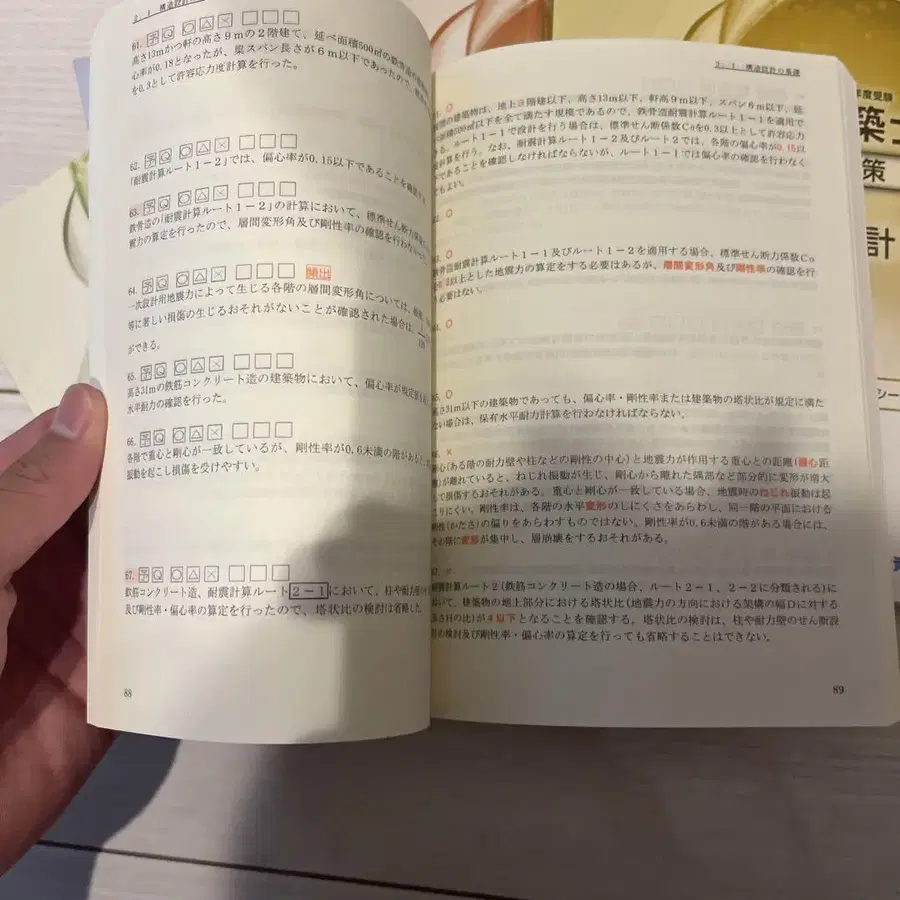 2.1 構造設計の
61. 予 Q ○ △ ×
高さ13mかつ軒の高さ9mの2階建て、延べ面積500㎡の鉄骨造の建築物
心率が0.18となったが、梁スパン長さが6m以下であったので、
を0.3として許容応力度計算を行った。
62. 予 Q ○ △ ×
「耐震計算ルート1-2」では、偏心率が0.15以下であることを確認
63. 予 Q ○ △ ×
鉄骨造の「耐震計算ルート1-2」の計算において、標準せん断力係数
力の算定を行ったので、層間変形角及び剛性率の確認を行わな
64. 予 Q ○ △ × 頻出
一次設計用地震力によって生じる各階の層間変形角については、
等に著しい損傷の生じるおそれがないことが確認された場合は、
ができる。
65. 予 Q ○ △ ×
高さ31mの鉄筋コンクリート造の建築物において、偏心率が規定値を
水平耐力の確認を行った。
66. 予 Q ○ △ ×
各階で重心と剛心が一致しているが、剛性率が0.6未満の階がある
振動を起こし損傷を受けやすい。
67. 予 Q ○ △ ×
鉄筋コンクリート造、耐震計算ルート2-1において、柱や耐力壁の
及び剛性率・偏心率の算定を行ったので、塔状比の検討は省略した
88
2.1 構造設計の基礎
○
の建築物は、地上3階建以下、高さ13m以下、軒高9m以下、スパン6m以下、延
面積500㎡以下を全て満たす規模であるので、鉄骨造耐震計算ルート1-1を適用で
る。ルート1-1で設計を行う場合は、標準せん断係数C₀を0.3以上として許容応力
計算を行う。なお、耐震計算ルート1-2及びルート2では、各階の偏心率が0.15以
であることを確認しなければならないが、ルート1-1では偏心率の確認を行わなく
てもよい。
○
○
鉄骨造耐震計算ルート1-1及びルート1-2を適用する場合、標準せん断力係数C₀
以上とした地震力の算定をする必要はあるが、層間変形角及び剛性率の確認を行
う必要はない。
○
○
高さ31m以下の建築物であっても、偏心率・剛性率または建築物の塔状比が規定に満た
ない場合は、保有水平耐力計算を行わなければならない。
66. ×
心(ある階の耐力壁や柱などの剛性の中心)と地震力が作用する重心との距離(偏心距
)が離れていると、ねじれ振動が生じ、剛心から離れた隅部など部分的に変形が増大
して損傷するおそれがある。重心と剛心が一致している場合、地震時のねじれ振動は起
こりにくい。剛性率は、各階の水平変形のしにくさをあらわし、同一階の平面における
剛性(かたさ)の偏りをあらわすものではない。剛性率が0.6未満の階がある場合には、
その階に変形が集中し、層崩壊をするおそれがある。
67. ×
耐震計算ルート2(鉄筋コンクリート造の場合、ルート2-1、2-2に分類される)に
おいて、建築物の地上部分における塔状比(地震力の方向における架構の幅Dに対する
高さHの比)が4以下となることを確認する。塔状比の検討は、柱や耐力壁のせん断設
の検討及び剛性率・偏心率の算定を行っても省略することはできない。
89
年度受験
築士
策
計
シー